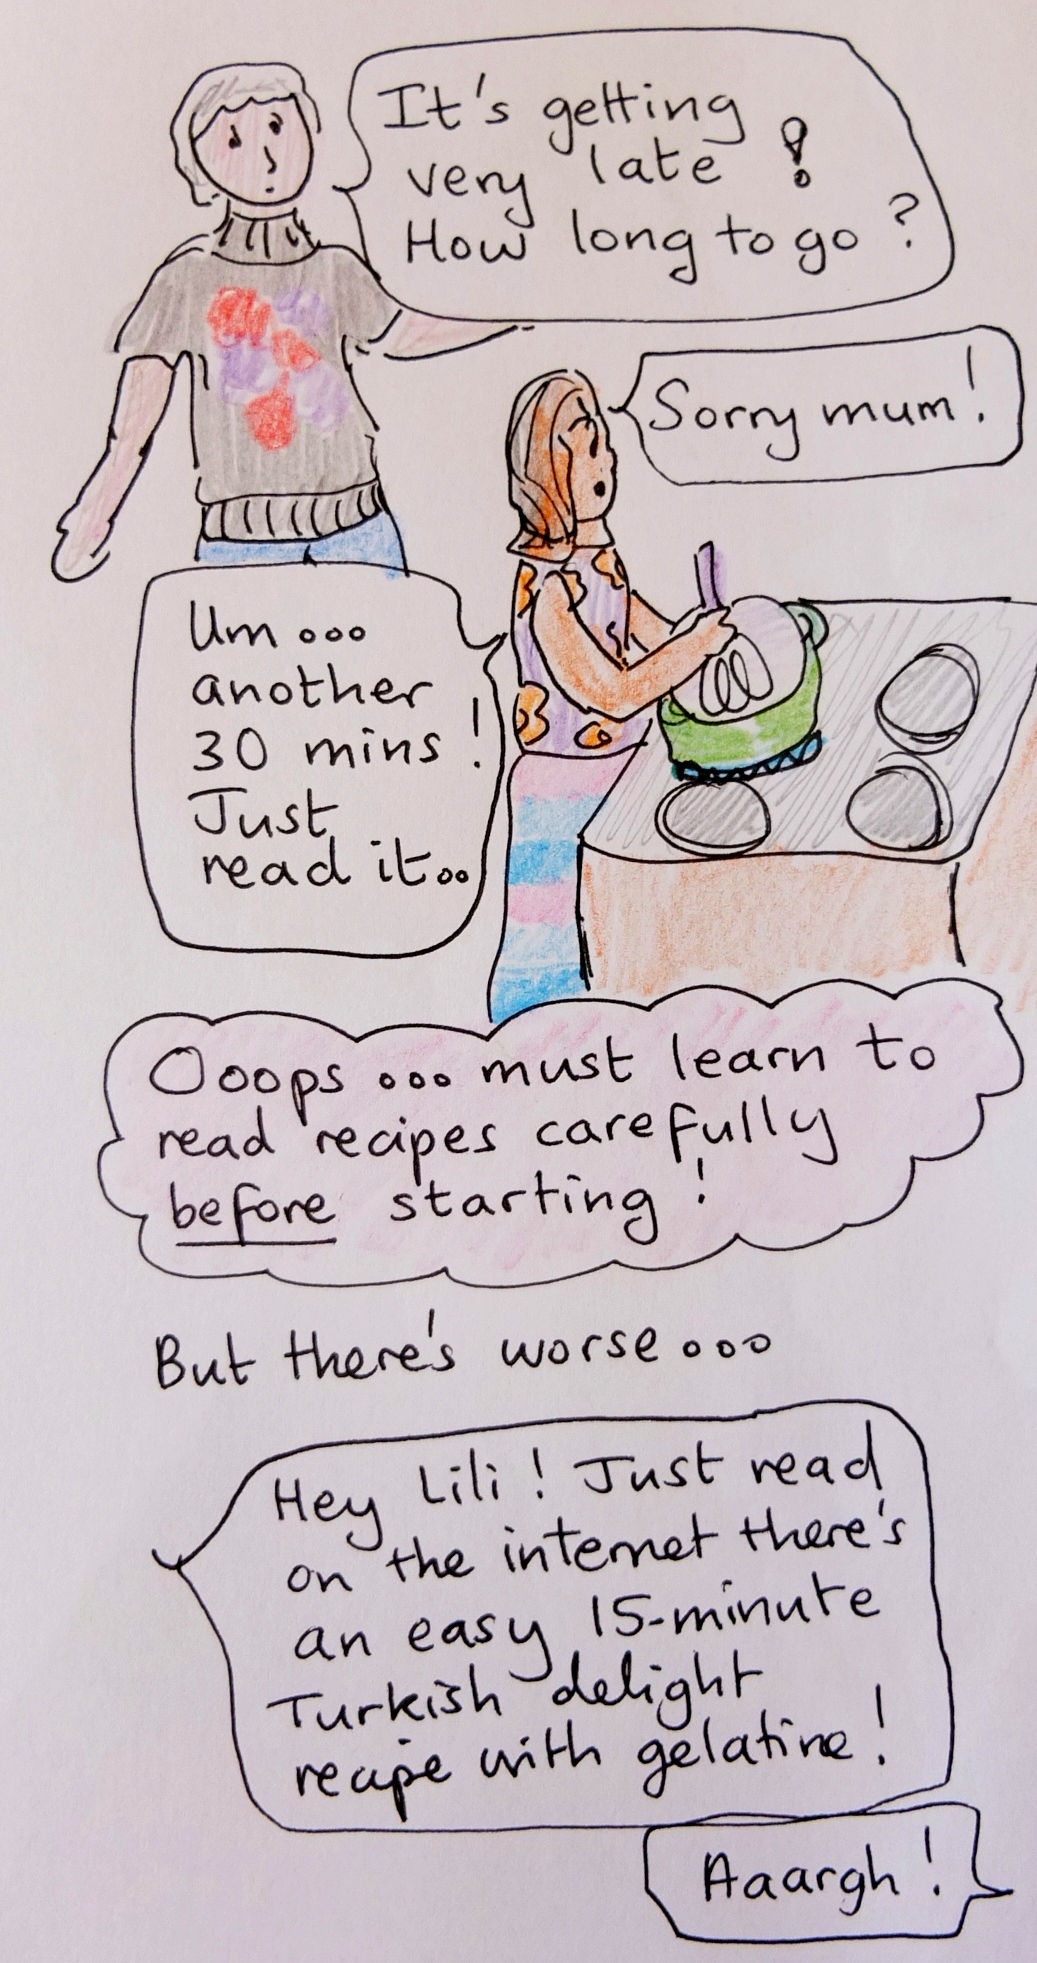 It's getting
very late !
How long to go ?
Sorry mum !
Um ...
another
30 mins !
Just
read it..
Ooops ... must learn to
read recipes carefully
before starting !
But there's worse ...
Hey Lili ! Just read
on the internet there's
an easy 15-minute
Turkish delight
recipe with gelatine !
Aaargh !